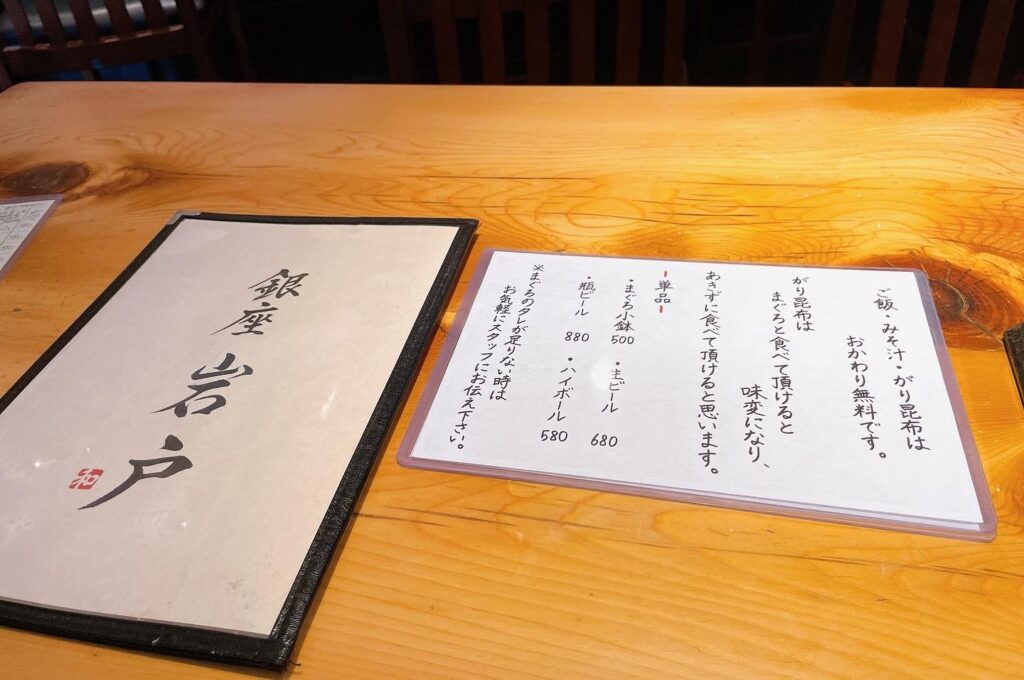 銀座 岩戸
和
ご飯・みそ汁・がり昆布は
おかわり無料です。
がり昆布は
まぐろと食べて頂けると
味変になり、
あきずに食べて頂けると思います。
ー単品ー
・まぐろ小鉢 500
・生ビール 680
・瓶ビール 880
・ハイボール 580
※まぐろのタレが足りない時は
お気軽にスタッフにお伝え下さい。